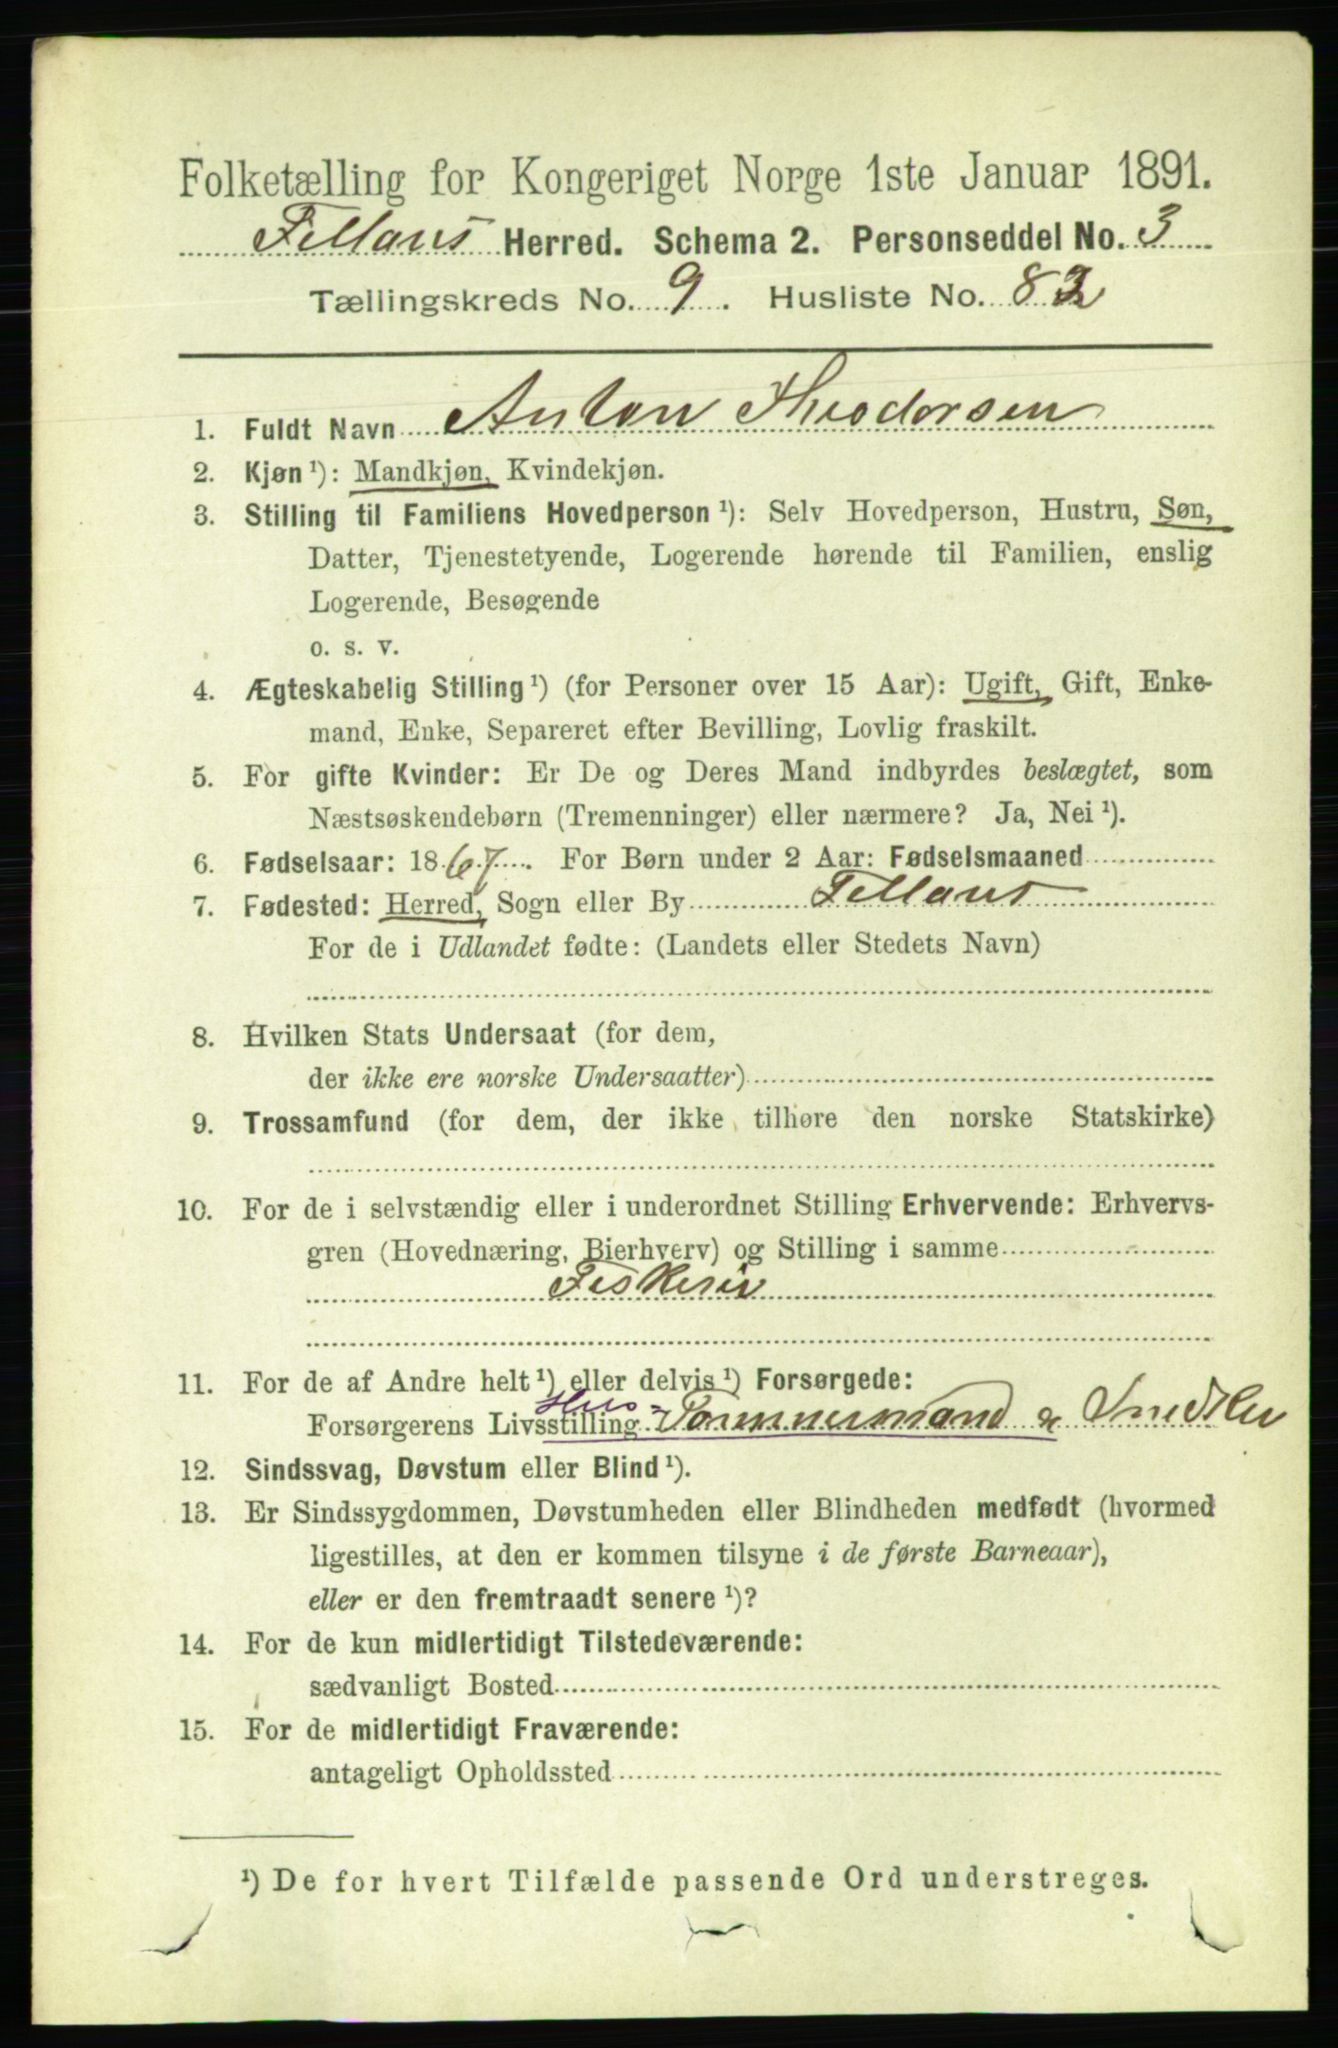 Folketælling for Kongeriget Norge 1ste Januar 1891.
Fillans Herred. Schema 2. Personseddel No. 3
Tællingskreds No. 9. Husliste No. 82
1. Fuldt Navn Anton Theodorsen
2. Kjøn ¹): Mandkjøn, Kvindekjøn.
3. Stilling til Familiens Hovedperson ¹): Selv Hovedperson, Hustru, Søn,
Datter, Tjenestetyende, Logerende hørende til Familien, enslig
Logerende, Besøgende
o. s. v.
4. Ægteskabelig Stilling ¹) (for Personer over 15 Aar): Ugift, Gift, Enke-
mand, Enke, Separeret efter Bevilling, Lovlig fraskilt.
5. For gifte Kvinder: Er De og Deres Mand indbyrdes beslægtet, som
Næstsøskendebørn (Tremenninger) eller nærmere? Ja, Nei ¹).
6. Fødselsaar: 1867. For Børn under 2 Aar: Fødselsmaaned
7. Fødested: Herred, Sogn eller By Fillans
For de i Udlandet fødte: (Landets eller Stedets Navn)
8. Hvilken Stats Undersaat (for dem,
der ikke ere norske Undersaatter)
9. Trossamfund (for dem, der ikke tilhøre den norske Statskirke)
10. For de i selvstændig eller i underordnet Stilling Erhvervende: Erhvervs-
gren (Hovednæring, Bierhverv) og Stilling i samme
Fiskeri
11. For de af Andre helt ¹) eller delvis ¹) Forsørgede:
Hus=
Forsørgerens Livsstilling Tømmermand &
12. Sindssvag, Døvstum eller Blind ¹).
13. Er Sindssygdommen, Døvstumheden eller Blindheden medfødt (hvormed
ligestilles, at den er kommen tilsyne i de første Barneaar),
eller er den fremtraadt senere ¹)?
14. For de kun midlertidigt Tilstedeværende:
sædvanligt Bosted
15. For de midlertidigt Fraværende:
antageligt Opholdssted
¹) De for hvert Tilfælde passende Ord understreges.